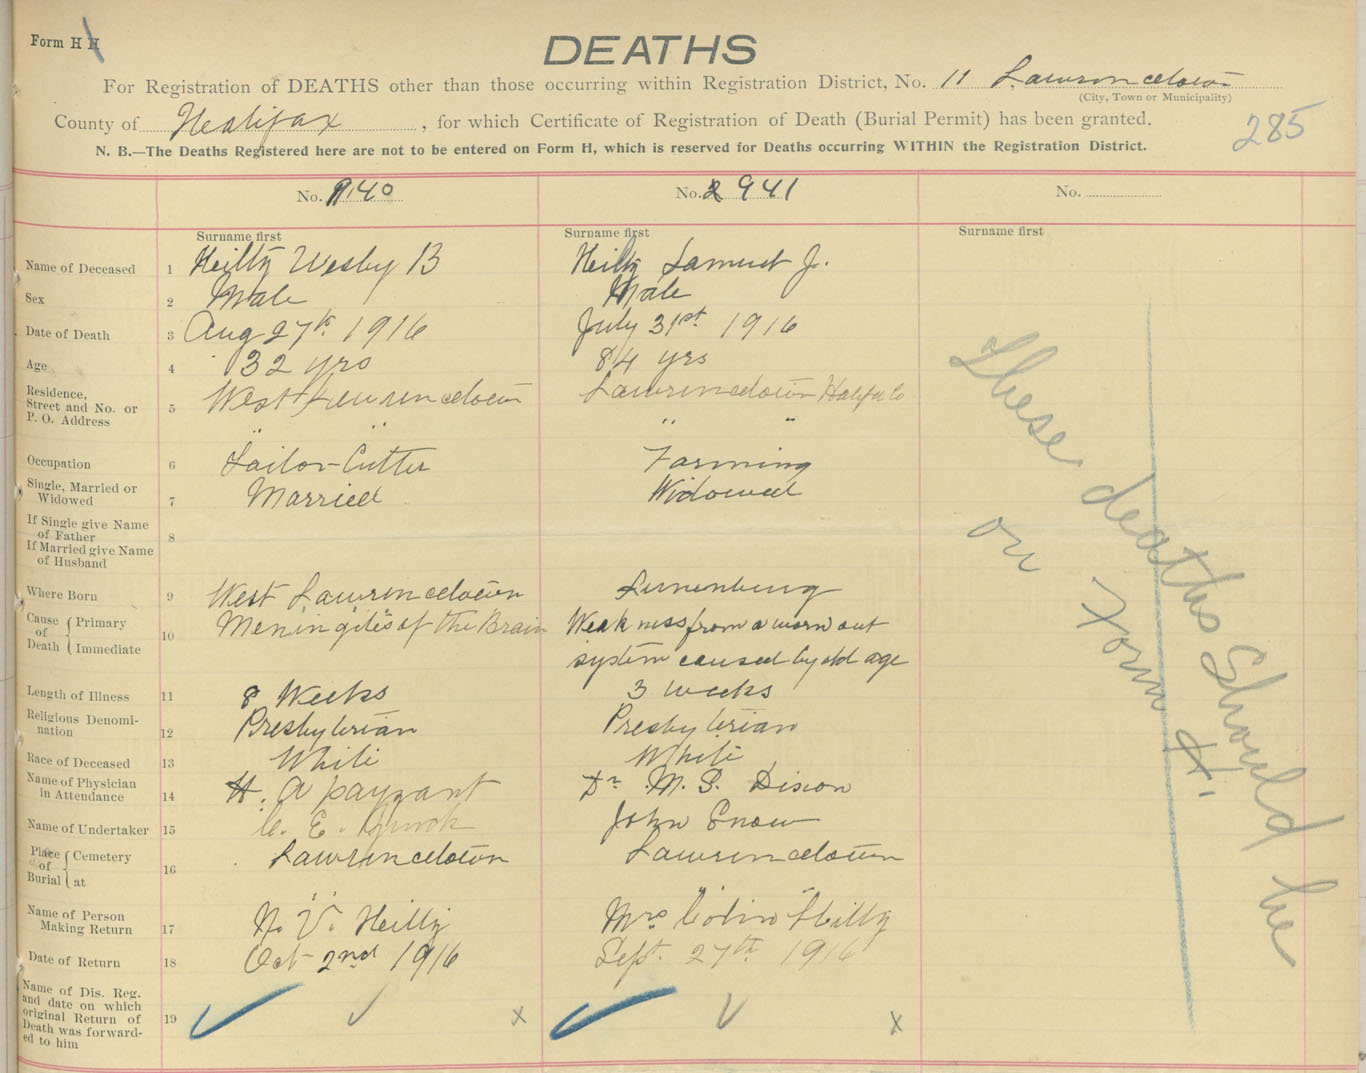 Form H H
DEATHS
For Registration of DEATHS other than those occurring within Registration District, No. 11 Lawrencetown
(City, Town or Municipality)
County of Halifax, for which Certificate of Registration of Death (Burial Permit) has been granted.
285
N. B.—The Deaths Registered here are not to be entered on Form H, which is reserved for Deaths occurring WITHIN the Registration District.
No. 940 No. 941 No.
Surname first Surname first Surname first
Name of Deceased 1 Hiltz Wesley B Hiltz Samuel J.
Sex 2 Male Male
Date of Death 3 Aug 27th 1916 July 31st 1916
Age 4 32 yrs 84 yrs
Residence, Street and No. or P. O. Address 5 West Lawrencetown Lawrencetown Halifax Co
" " " "
Occupation 6 Tailor-Cutter Farming
Single, Married or Widowed 7 Married Widowed
If Single give Name of Father
If Married give Name of Husband 8
Where Born 9 West Lawrencetown Lunenburg
Cause of Death { Primary Immediate 10 Meningites of the Brain Weakness from a worn out
system caused by old age
Length of Illness 11 8 Weeks 3 weeks
Religious Denomi-nation 12 Presbyterian Presbyterian
Race of Deceased 13 White White
Name of Physician in Attendance 14 H. A payzant Dr. M. G. Dixon
Name of Undertaker 15 C. E. John Snow
Place of Burial { Cemetery at 16 Lawrencetown Lawrencetown
" " " "
Name of Person Making Return 17 N. V. Hiltz Mrs Colin Hiltz
Date of Return 18 Oct 2nd 1916 Sept. 27th 1916
Name of Dis. Reg. and date on which original Return of Death was forward-ed to him 19 x x
These deaths Should be
on Form H.